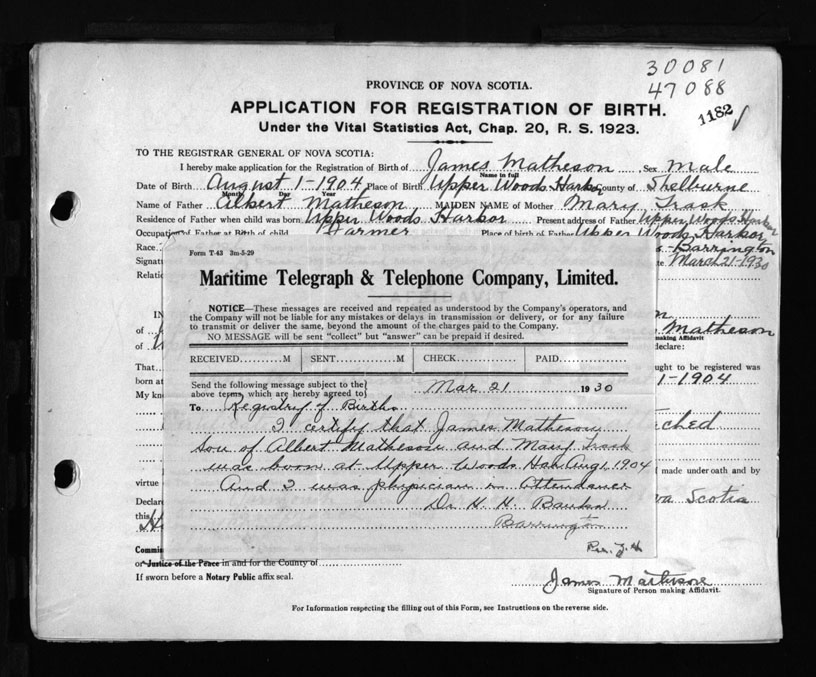 30081
47088
1182
PROVINCE OF NOVA SCOTIA.
APPLICATION FOR REGISTRATION OF BIRTH.
Under the Vital Statistics Act, Chap. 20, R. S. 1923.
TO THE REGISTRAR GENERAL OF NOVA SCOTIA:
I hereby make application for the Registration of Birth of James Matheson, Sex Male
Name in full
Date of Birth August 1-1904, Place of Birth Upper Woods Harbor County of Shelburne
Month Day Year
Name of Father Albert Matheson MAIDEN NAME of Mother Mary Trask
Residence of Father when child was born Upper Woods Harbor Present address of Father Upper Woods Harbor
Occupation of Father at Birth of child Farmer Place of birth of Father Upper Woods Harbor
Race Barrington
Signatu March 21-1930
Relatio
Form T-43 3m-5-29
Maritime Telegraph & Telephone Company, Limited.
NOTICE—These messages are received and repeated as understood by the Company's operators, and
the Company will not be liable for any mistakes or delays in transmission or delivery, or for any failure
to transmit or deliver the same, beyond the amount of the charges paid to the Company.
NO MESSAGE will be sent "collect" but "answer" can be prepaid if desired.
RECEIVED M SENT M CHECK PAID
Send the following message subject to the
above terms, which are hereby agreed to} Mar 21 1930
To Registry of Births
I certify that James Matheson
Son of Albert Matheson and Mary Trask
was born at Upper Woods Hbr Aug 1 1904
And I was physician in Attendance
Dr H. H.
Barrington
IN
of Matheson
making Affidavit
of declare:
That ught to be registered was
born at 1-1904
My kno
ched
made under oath and by
virtue
Declare va Scotia
this
Commis
or Justice of the Peace in and for the County of
If sworn before a Notary Public affix seal.
James Matheson
Signature of Person making Affidavit.
For Information respecting the filling out of this Form, see Instructions on the reverse side.